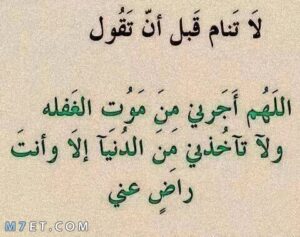 لَا تَنام قَبل أنّ تَقُول
اللَهُم أَجَرني مِنَ مَوُت الغَفله
ولآ تآخُذني مَنَ الدُنيَآ إلَا وأنتَ
راضٍ عني
M7ET.COM